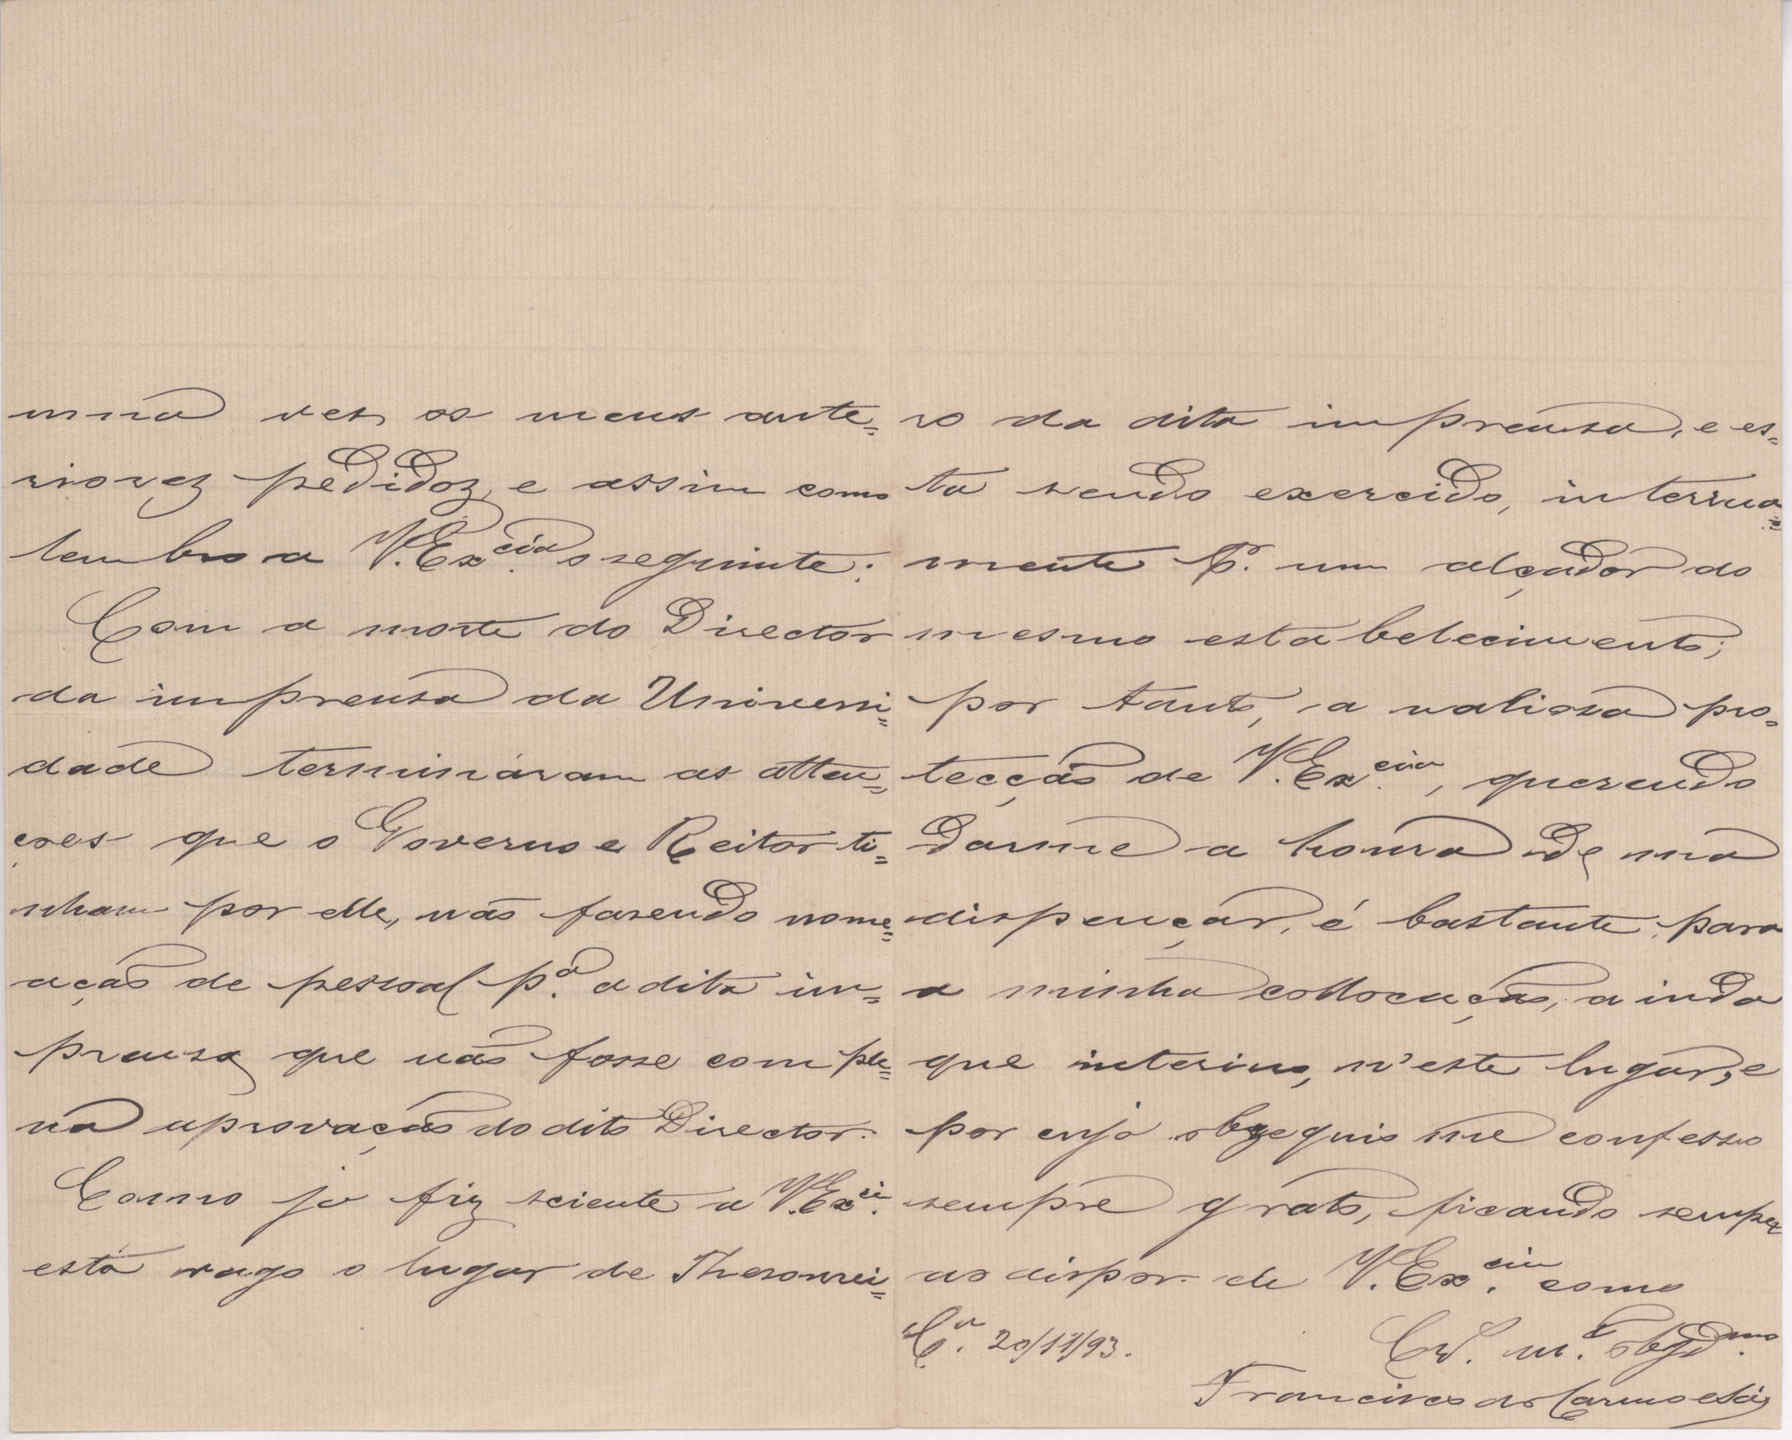 uma vez os meus ante=
riorez pedidoz, e assim como
lembro a V. Ex.cia o seguinte:
Com a morte do Director
da imprensa da Universi=
dade termináram as atten=
ções que o Governo e Reitor ti=
nham por elle, não fasendo nome=
ação de pessoal p.a a dita im=
prensa que não fosse com ple=
na aprovação do dito Director.
Como já fiz sciente a V. Ex.ci
está vago o lugar de Thesourei=
ro da dita imprensa, e es=
ta sendo exercido, interina=
mente P.r um alçador do
mesmo estabelecimento;
por tanto, a valiosa pro=
tecção de V. Ex.cia, querendo
darme a honra de ma
dispençar, é bastante para
a minha collocação, ainda
que interino, n'este lugar, e
por cujo obzequio me confesso
sempre grato, ficando sempre
ao dispor de V. Ex.cia como
C.a 20/11/93.
Cr. m.to obgd.mo
Francisco do Carmo e Sá